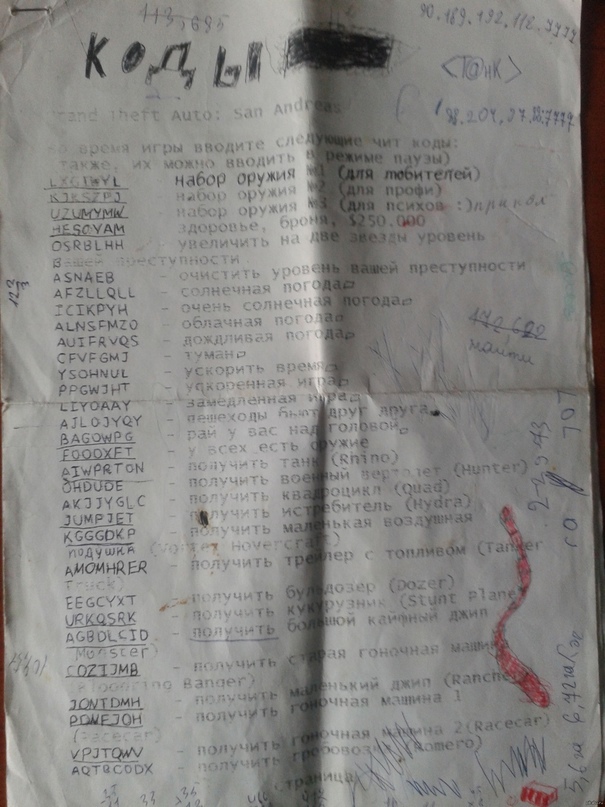 113,5695
90.189.192.112.7777
КОДЫ
<Т@нК>
Grand Theft Auto: San Andreas
Во время игры вводите следующие чит коды:
также, их можно вводить в режиме паузы)
LXGIWYL - набор оружия №1 (для любителей)
KJKSZPJ - набор оружия №2 (для профи)
UZUMYMW - набор оружия №3 (для психов :) прикол
HESOYAM - здоровье, броня, $250.000
OSRBLHH - увеличить на две звезды уровень
вашей преступности
ASNAEB - очистить уровень вашей преступности
AFZLLQLL - солнечная погода
ICIKPYH - очень солнечная погода
ALNSFMZO - облачная погода
AUIFRVQS - дождливая погода
CFVFGMJ - туман
YSOHNUL - ускорить время
PPGWJHT - ускоренная игра
LIYOAAY - замедленная игра
AJLOJYQY - пешеходы бьют друг друга
BAGOWPG - рай у вас над головой
FOOOXFT - у всех есть оружие
AIWPRTON - получить танк (Rhino)
OHDUDE - получить военный вертолет (Hunter)
AKJJYGLC - получить квадроцикл (Quad)
JUMPJET - получить истребитель (Hydra)
KGGGDKP - получить маленькая воздушная
подушка (Vortex Hovercraft)
AMOMHRER - получить трейлер с топливом (Tanker
Truck)
EEGCYXT - получить бульдозер (Dozer)
URKQSRK - получить кукурузник (Stunt Plane)
AGBDLCID - получить большой каифный джип
(Monster)
COZIJMB - получить старая гоночная машина
(Bloodring Banger)
JQNTDMH - получить маленький джип (Rancher)
PDNEJOH - получить гоночная машина 1
(Racecar)
VPJTQWV - получить гоночная машина 2(Racecar)
AQTBCODX - получить гробовоз (Romero)
страница
472 622
найти
22943
со 707